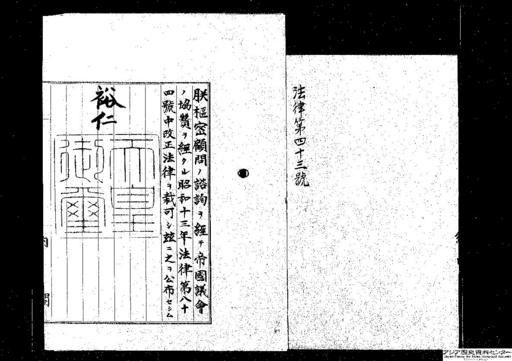 法律第四十三號
朕樞密顧問ノ諮詢ヲ經テ帝國議會
ノ協贊ヲ經タル昭和十三年法律第八十
四號中改正法律ヲ裁可シ玆ニ之ヲ公布セシム
裕仁
天皇
御璽
内閣
アジア歴史資料センター